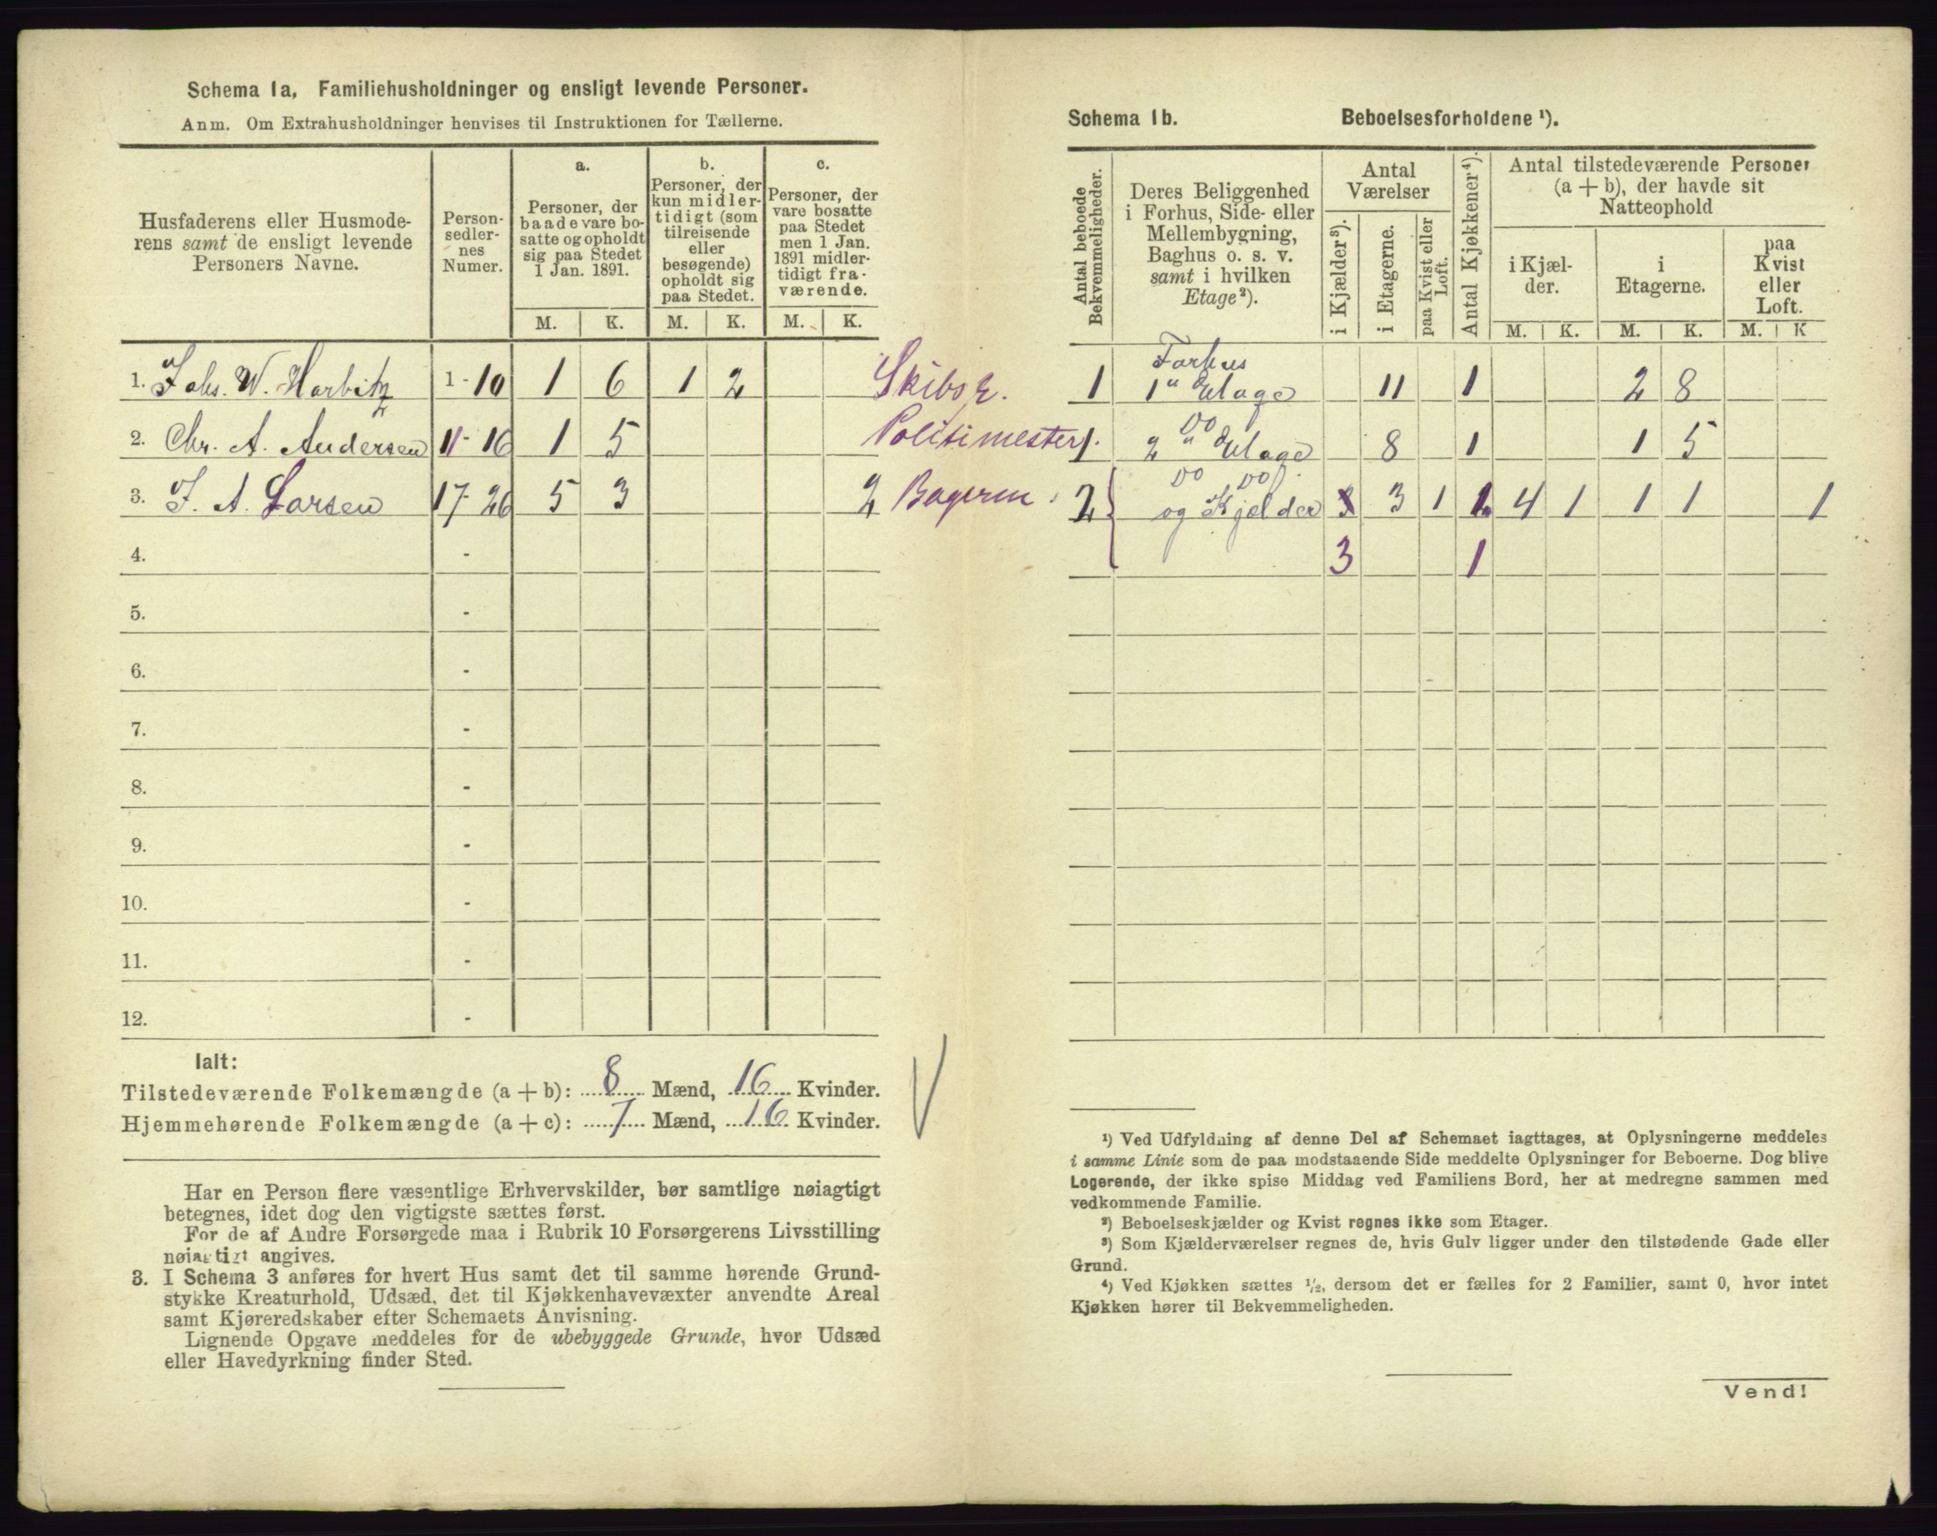 Schema 1a. Familiehusholdninger og ensligt levende Personer.
Anm. Om Extrahusholdninger henvises til Instruktionen for Tællerne.
Husfaderens eller Husmode-
rens samt de ensligt levende
Personers Navne.
Person-
sedler-
nes
Numer.
a.
Personer, der
baade vare bo-
satte og opholdt
sig paa Stedet
1 Jan. 1891.
b.
Personer, der
kun midler-
tidigt (som
tilreisende
eller
besøgende)
opholdt sig
paa Stedet.
c.
Personer, der
vare bosatte
paa Stedet
men 1 Jan.
1891 midler-
tidigt fra-
værende.
M. K. M. K. M. K.
1. Johs. W. Harbitz 1-10 1 6 1 2 Skibsr.
2. Chr. A. Andersen 11-16 1 5 Politimester
3. J. A. Larsen 17-26 5 3 2 Bageren
4. -
5. -
6. -
7. -
8. -
9. -
10. -
11. -
12. -
Ialt:
Tilstedeværende Folkemængde (a + b): 8 Mænd, 16 Kvinder.
Hjemmehørende Folkemængde (a + c): 7 Mænd, 16 Kvinder.
Har en Person flere væsentlige Erhvervskilder, bør samtlige nøiagtigt
betegnes, idet dog den vigtigste sættes først.
For de af Andre Forsørgede maa i Rubrik 10 Forsørgerens Livsstilling
nøiagtigt angives.
3. I Schema 3 anføres for hvert Hus samt det til samme hørende Grund-
stykke Kreaturhold, Udsæd, det til Kjøkkenhavevæxter anvendte Areal
samt Kjøreredskaber efter Schemaets Anvisning.
Lignende Opgave meddeles for de ubebyggede Grunde, hvor Udsæd
eller Havedyrkning finder Sted.
Schema 1b. Beboelsesforholdene ¹).
Antal beboede
Bekvemmeligheder.
Deres Beliggenhed
i Forhus, Side- eller
Mellembygning,
Baghus o. s. v.
samt i hvilken
Etage²).
Antal
Værelser
i Kjælder³).
i Etagerne.
paa Kvist eller
Loft.
Antal Kjøkkener⁴).
Antal tilstedeværende Personer
(a + b), der havde sit
Natteophold
i Kjæl-
der.
i
Etagerne.
paa
Kvist
eller
Loft.
M. K. M. K. M. K
Forhus
1 1ᵗᵉ Etage 11 1 2 8
Do
1 2 Etage 8 1 1 5
Do Do
2 og Kjelder 3 1 1 4 1 1 1 1
3 1
¹) Ved Udfyldning af denne Del af Schemaet iagttages, at Oplysningerne meddeles
i samme Linie som de paa modstaaende Side meddelte Oplysninger for Beboerne. Dog blive
Logerende, der ikke spise Middag ved Familiens Bord, her at medregne sammen med
vedkommende Familie.
²) Beboelseskjælder og Kvist regnes ikke som Etager.
³) Som Kjælderværelser regnes de, hvis Gulv ligger under den tilstødende Gade eller
Grund.
⁴) Ved Kjøkken sættes ½, dersom det er fælles for 2 Familier, samt 0, hvor intet
Kjøkken hører til Bekvemmeligheden.
Vend!